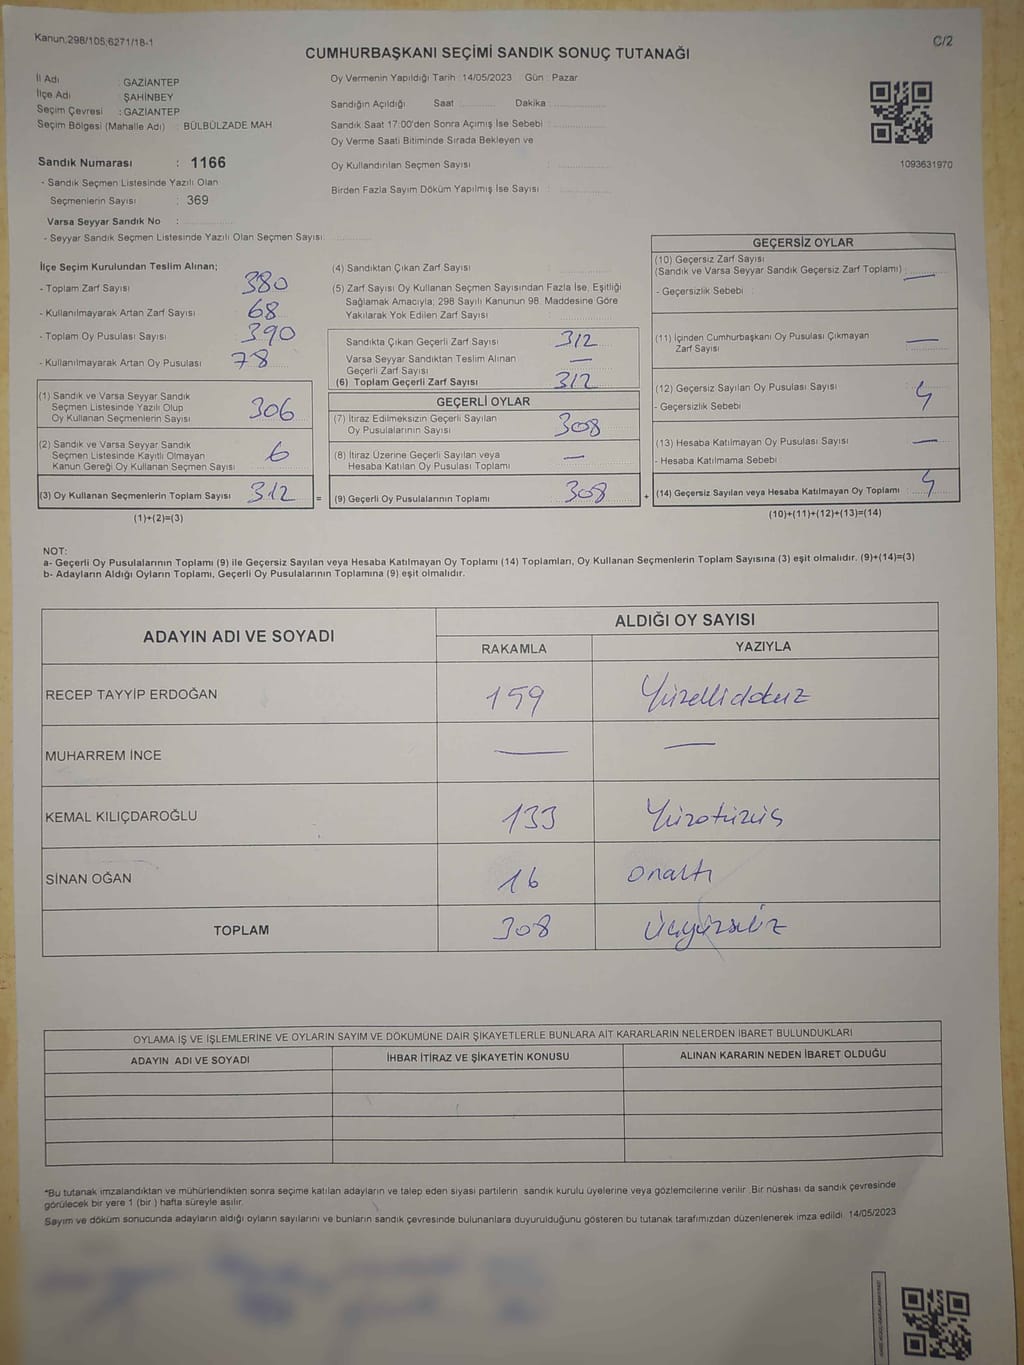 Kanun;298/105;6271/18-1
C/2
CUMHURBAŞKANI SEÇİMİ SANDIK SONUÇ TUTANAĞI
İl Adı : GAZİANTEP
İlçe Adı : ŞAHİNBEY
Seçim Çevresi : GAZİANTEP
Seçim Bölgesi (Mahalle Adı) : BÜLBÜLZADE MAH
Sandık Numarası : 1166
- Sandık Seçmen Listesinde Yazılı Olan
Seçmenlerin Sayısı : 369
Varsa Seyyar Sandık No :
- Seyyar Sandık Seçmen Listesinde Yazılı Olan Seçmen Sayısı:
Oy Vermenin Yapıldığı Tarih : 14/05/2023 Gün : Pazar
Sandığın Açıldığı Saat Dakika
Sandık Saat 17:00'den Sonra Açımış İse Sebebi :
Oy Verme Saati Bitiminde Sırada Bekleyen ve
Oy Kullandırılan Seçmen Sayısı :
Birden Fazla Sayım Döküm Yapılmış İse Sayısı :
1093631970
İlçe Seçim Kurulundan Teslim Alınan;
- Toplam Zarf Sayısı 380
- Kullanılmayarak Artan Zarf Sayısı 68
- Toplam Oy Pusulası Sayısı 390
- Kullanılmayarak Artan Oy Pusulası 78
(1) Sandık ve Varsa Seyyar Sandık
Seçmen Listesinde Yazılı Olup
Oy Kullanan Seçmenlerin Sayısı 306
(2) Sandık ve Varsa Seyyar Sandık
Seçmen Listesinde Kayıtlı Olmayan
Kanun Gereği Oy Kullanan Seçmen Sayısı 6
(3) Oy Kullanan Seçmenlerin Toplam Sayısı 312 =
(1)+(2)=(3)
(4) Sandıktan Çıkan Zarf Sayısı :
(5) Zarf Sayısı Oy Kullanan Seçmen Sayısından Fazla İse, Eşitliği
Sağlamak Amacıyla; 298 Sayılı Kanunun 98. Maddesine Göre
Yakılarak Yok Edilen Zarf Sayısı :
Sandıkta Çıkan Geçerli Zarf Sayısı 312
Varsa Seyyar Sandıktan Teslim Alınan
Geçerli Zarf Sayısı —
(6) Toplam Geçerli Zarf Sayısı 312
GEÇERLİ OYLAR
(7) İtiraz Edilmeksizin Geçerli Sayılan
Oy Pusulalarının Sayısı 308
(8) İtiraz Üzerine Geçerli Sayılan veya
Hesaba Katılan Oy Pusulası Toplamı —
(9) Geçerli Oy Pusulalarının Toplamı 308 +
GEÇERSİZ OYLAR
(10) Geçersiz Zarf Sayısı
(Sandık ve Varsa Seyyar Sandık Geçersiz Zarf Toplamı) : —
- Geçersizlik Sebebi :
(11) İçinden Cumhurbaşkanı Oy Pusulası Çıkmayan
Zarf Sayısı : —
(12) Geçersiz Sayılan Oy Pusulası Sayısı : 4
- Geçersizlik Sebebi
(13) Hesaba Katılmayan Oy Pusulası Sayısı : —
- Hesaba Katılmama Sebebi :
(14) Geçersiz Sayılan veya Hesaba Katılmayan Oy Toplamı : 4
(10)+(11)+(12)+(13)=(14)
NOT:
a- Geçerli Oy Pusulalarının Toplamı (9) ile Geçersiz Sayılan veya Hesaba Katılmayan Oy Toplamı (14) Toplamları, Oy Kullanan Seçmenlerin Toplam Sayısına (3) eşit olmalıdır. (9)+(14)=(3)
b- Adayların Aldığı Oyların Toplamı, Geçerli Oy Pusulalarının Toplamına (9) eşit olmalıdır.
ADAYIN ADI VE SOYADI
ALDIĞI OY SAYISI
RAKAMLA YAZIYLA
RECEP TAYYİP ERDOĞAN 159 Yüzellidokuz
MUHARREM İNCE — —
KEMAL KILIÇDAROĞLU 133 Yüzotuzüç
SİNAN OĞAN 16 onaltı
TOPLAM 308 Üçyüzsekiz
OYLAMA İŞ VE İŞLEMLERİNE VE OYLARIN SAYIM VE DÖKÜMÜNE DAİR ŞİKAYETLERLE BUNLARA AİT KARARLARIN NELERDEN İBARET BULUNDUKLARI
ADAYIN ADI VE SOYADI İHBAR İTİRAZ VE ŞİKAYETİN KONUSU ALINAN KARARIN NEDEN İBARET OLDUĞU
*Bu tutanak imzalandıktan ve mühürlendikten sonra seçime katılan adayların ve talep eden siyasi partilerin sandık kurulu üyelerine veya gözlemcilerine verilir. Bir nüshası da sandık çevresinde
görülecek bir yere 1 (bir ) hafta süreyle asılır.
Sayım ve döküm sonucunda adayların aldığı oyların sayılarını ve bunların sandık çevresinde bulunanlara duyurulduğunu gösteren bu tutanak tarafımızdan düzenlenerek imza edildi. 14/05/2023